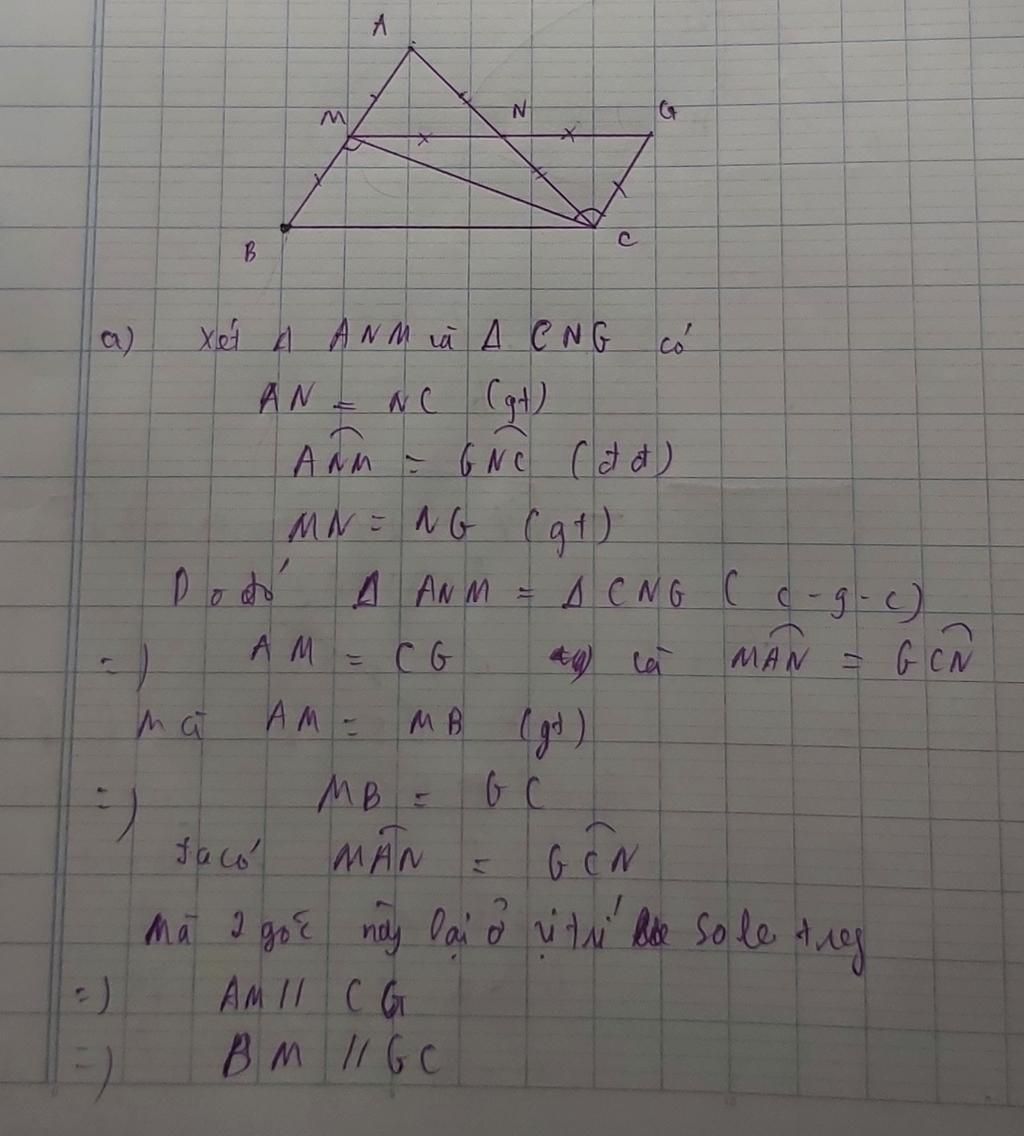 A
M N G
B C
a) Xét Δ ANM và Δ CNG có
AN = NC (gt)
AN̂M = GN̂C (đđ)
MN = NG (gt)
Do đó Δ ANM = Δ CNG (c-g-c)
=) AM = CG và MÂN = GĈN
Mà AM = MB (gt)
=) MB = GC
ta có MÂN = GĈN
Mà 2 góc này lại ở vị trí so le
=) AM // CG
=) BM // GC